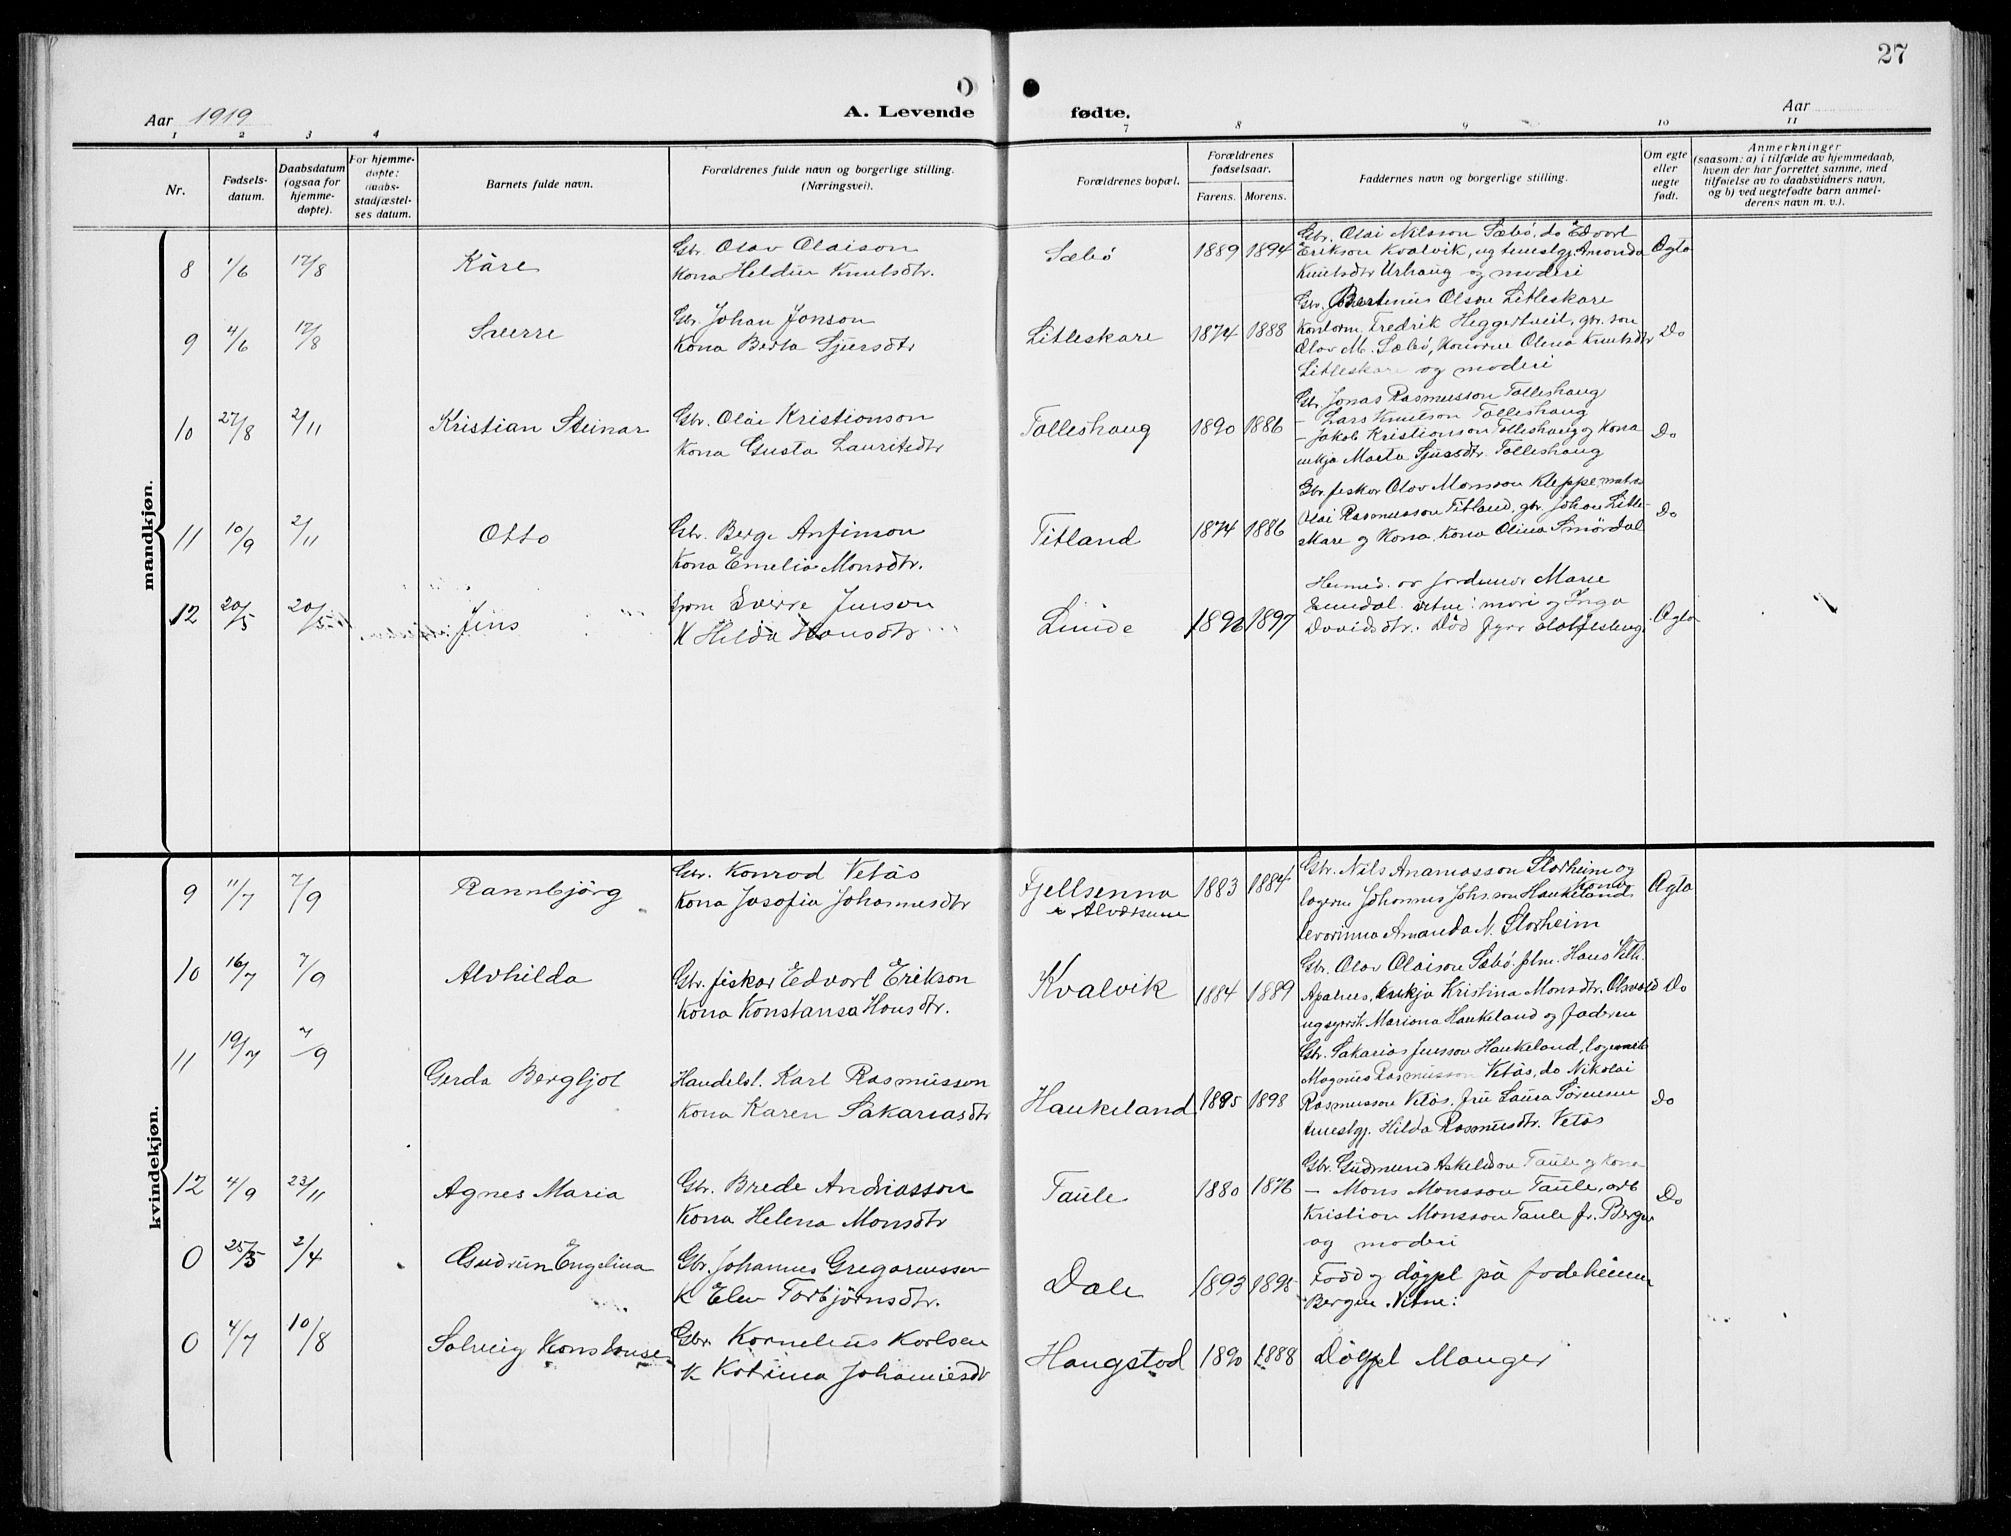 27
Aar 1919
A. Levende
fødte.
Aar
1 2 3 4 7 8 9 10 11
Nr.
Fødsels-
datum.
Daabsdatum
(ogsaa for
hjemme-
døpte).
For hjemme-
døpte:
daabs-
stadfæstel-
ses datum.
Barnets fulde navn.
Forældrenes fulde navn og borgerlige stilling.
(Næringsvei).
Forældrenes bopæl.
Forældrenes
fødselsaar.
Farens. Morens.
Faddernes navn og borgerlige stilling.
Om egte
eller
uegte
født.
Anmerkninger
(saasom: a) i tilfælde av hjemmedaab,
hvem der har forrettet samme, med
tilføielse av to daabsvidners navn,
og b) ved uegtefødte barn anmel-
derens navn m. v.).
mandkjøn.
8 1/6 17/8 Kåre
Gbr. Olav Olaison
Kona Heldin Knutsdtr.
Sæbø 1889 1894
Gbr. Olai Nilsson Sæbö, do Edvort
Erikson Kvalvik, ug tenestgj. Amonda
Knutsdtr Urhaug og moderi
Ogta
9 4/6 17/8 Sverre
Gbr. Johan Jonson
Kona Berta Sjursdtr
Litleskare 1874 1888
Gbr. Bertinius Olson Litleskare
Kontorm. Fredrik Heggertveit, gbr. son
Olav M. Sæbö, Konorne Olena Knutsdtr
Litleskare og moderi
Do
10 27/8 2/11 Kristian Steinar
Gbr. Olai Kristionson
Kona Gusta Lauritsdtr
Tolleshaug 1890 1886
Gbr. Jonas Rasmusson Tolleshaug
- Lars Knutson Tolleshaug
- Jakob Kristionson Tolleshaug og Kona
enkja Marta Sjursdtr. Tolleshaug
Do
11 10/9 2/11 Otto
Gbr. Berge Anfinson
Kona Emelia Monsdtr.
Titland 1874 1886
Gbr. fiskar Olav Monsson Kleppe, matros
Olai Rasmusson Titland, gbr. Johan Litle-
skare og Kona, Kona Olina Smördal
Do
12 20/5 20/5 Jens
Sverre Jenson
K Hilda Hansdtr
Linde 1896 1897
Heimed. av Jordmor Marie
vitne: mori og Inga
Davidsdtr. Död fyre stadfesting.
Ogta
kvindekjøn.
9 11/7 7/9 Rannbjörg
Gbr. Konrod Vetås
Kona Josofia Johannesdtr
Fjellsenna
i Alversund
1883 1884
Gbr. Nils Anamosson Storheim og
Kona
Johannes Johs.son Haukeland
Amanda N. Storheim
Ogta
10 16/7 7/9 Alvhilda
Gbr. fiskar Edvort Erikson
Kona Konstansa Honsdtr.
Kvalvik 1884 1889
Gbr. Olav Olaison Sæbö, Hans Vilh.
Enkja Kristina Monsdtr.
Mariona Haukeland og faderen
Do
11 19/7 7/9
Gerda Bergljot
Handelsl. Karl Rasmusson
Kona Karen Sakariasdtr
Haukeland 1895 1898
Gbr. Sakarias Jensson Haukeland,
Magnus Rasmusson Vetås, do Nikolai
Rasmusson Vetås, fru Laura Sörensen
tenestgj. Hilda Rasmusdtr. Vetås
Do
12 4/9 23/11 Agnes Maria
Gbr. Brede Andriasson
Kona Helena Monsdtr
Taule 1880 1876
Gbr. Gudmund Askeldson Taule og Kona
- Mons Monsson Taule, arb
Kristian Monsson Taule fr. Bergen
og moderi
Do
0 25/3 2/4 Gudrun Engelina
Gbr. Johannes Gregoriussen
K Elen Torbjørnsdtr.
Dale 1893 1895
Född og döypt på fodeheimen
Bergen. Vitne:
0 4/7 10/8 Solveig Konstanse
Gbr. Kornelius Korlsen
K Katrina Johannesdtr
Haugstad 1890 1888
Döypt Manger